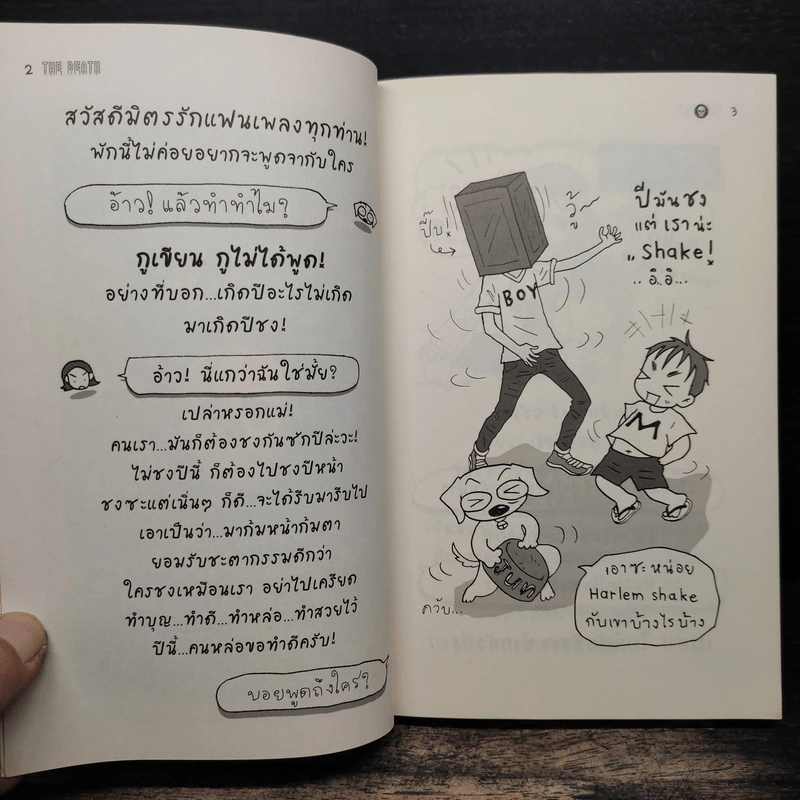 2 THE DEATH
สวัสดีมิตรรักแฟนเพลงทุกท่าน!
พักนี้ไม่ค่อยอยากจะพูดจากับใคร
อ้าว! แล้วทำทำไม?
กูเขียน กูไม่ได้พูด!
อย่างที่บอก...เกิดปีอะไรไม่เกิด
มาเกิดปีชง!
อ้าว! นี่แกว่าฉันใช่มั้ย?
เปล่าหรอกแม่!
คนเรา...มันก็ต้องชงกันซักปีล่ะวะ!
ไม่ชงปีนี้ ก็ต้องไปชงปีหน้า
ชงซะแต่เนิ่นๆ ก็ดี...จะได้รีบมารีบไป
เอาเป็นว่า...มาก้มหน้าก้มตา
ยอมรับชะตากรรมดีกว่า
ใครชงเหมือนเรา อย่าไปเครียด
ทำบุญ...ทำดี...ทำหล่อ...ทำสวยไว้
ปีนี้...คนหล่อขอทำดีครับ!
บอยพูดถึงใคร?
3
ปีมันชง
แต่เราน่ะ
"Shake!
..อิ..อิ...
ปั๊บ!
วู้~
BOY
M
JUN
ควับ...
เอาซะหน่อย
Harlem shake
กับเขาบ้างไรบ้าง